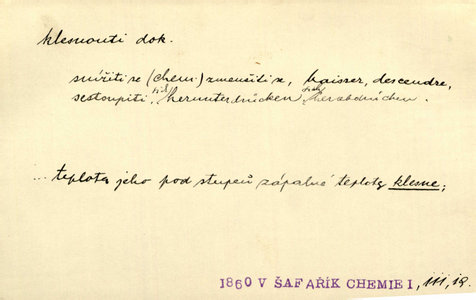 klesnouti dok.
snížiti se (chem.) zmenšiti se, baisser, descendre,
sestoupiti, sich herunterdrücken sich herabdrücken.
... teplota jeho pod stupeň zápalné teploty klesne;
1860 V ŠAFAŘÍK CHEMIE I, III, 19.